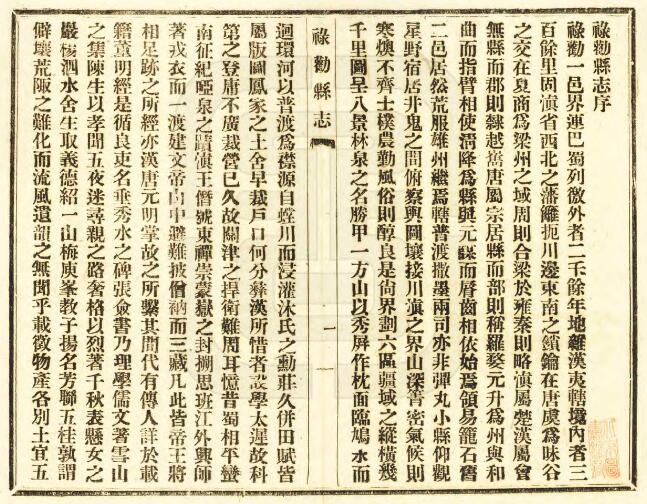 祿勸縣志序
祿勸一邑界連巴蜀列徼外者二千餘年地雜漢夷轄境內者三
百餘里固滇省西北之藩籬扼川邊東南之鎖鑰在唐虞爲昧谷
之交在夏商爲梁州之域周則合梁於雍秦則略滇屬楚漢屬會
無縣而郡則隸越嶲唐屬宗居縣而部則稱羅婺元升爲州與和
曲而指臂相使淸降爲縣與元謀而脣齒相依始爲領易籠石舊
二邑居然荒服雄州繼爲轄普渡撒墨兩司亦非彈丸小縣仰觀
星野宿居井鬼之間俯察輿圖壤接川滇之界山深箐密氣候則
寒燠不齊士樸農勤風俗則醇良是尙界劃六區疆域之縱橫幾
千里圖呈八景林泉之名勝甲一方山以秀屏作枕面臨鳩水而
祿勸縣志
一
迴環河以普渡爲襟源自螳川而浸灌沐氏之勳莊久併田賦皆
屬版圖鳳家之土舍早裁戶口何分彝漢所惜者設學太遲故科
第之登庸不廣裁營已久故關津之捍衛難周耳憶昔蜀相平蠻
南征紀啞泉之蹟滇王僭號東禪崇蒙嶽之封捆思班江外興師
著戎衣而一渡建文帝山中避難披僧衲而三藏凡此皆帝王將
相足跡之所經亦漢唐元明掌故之所繫其間代有傳人詳於載
籍董明經是循良吏名垂秀水之碑張僉書乃理學儒文著雪山
之集陳生以孝聞五夜迷尋親之路奢格以烈著千秋表懸女之
巖楊泗水舍生取義德紹一山梅庚峯教子揚名芳聯五桂孰謂
僻壤荒陬之難化而流風遺韻之無聞乎載徵物產各別土宜五